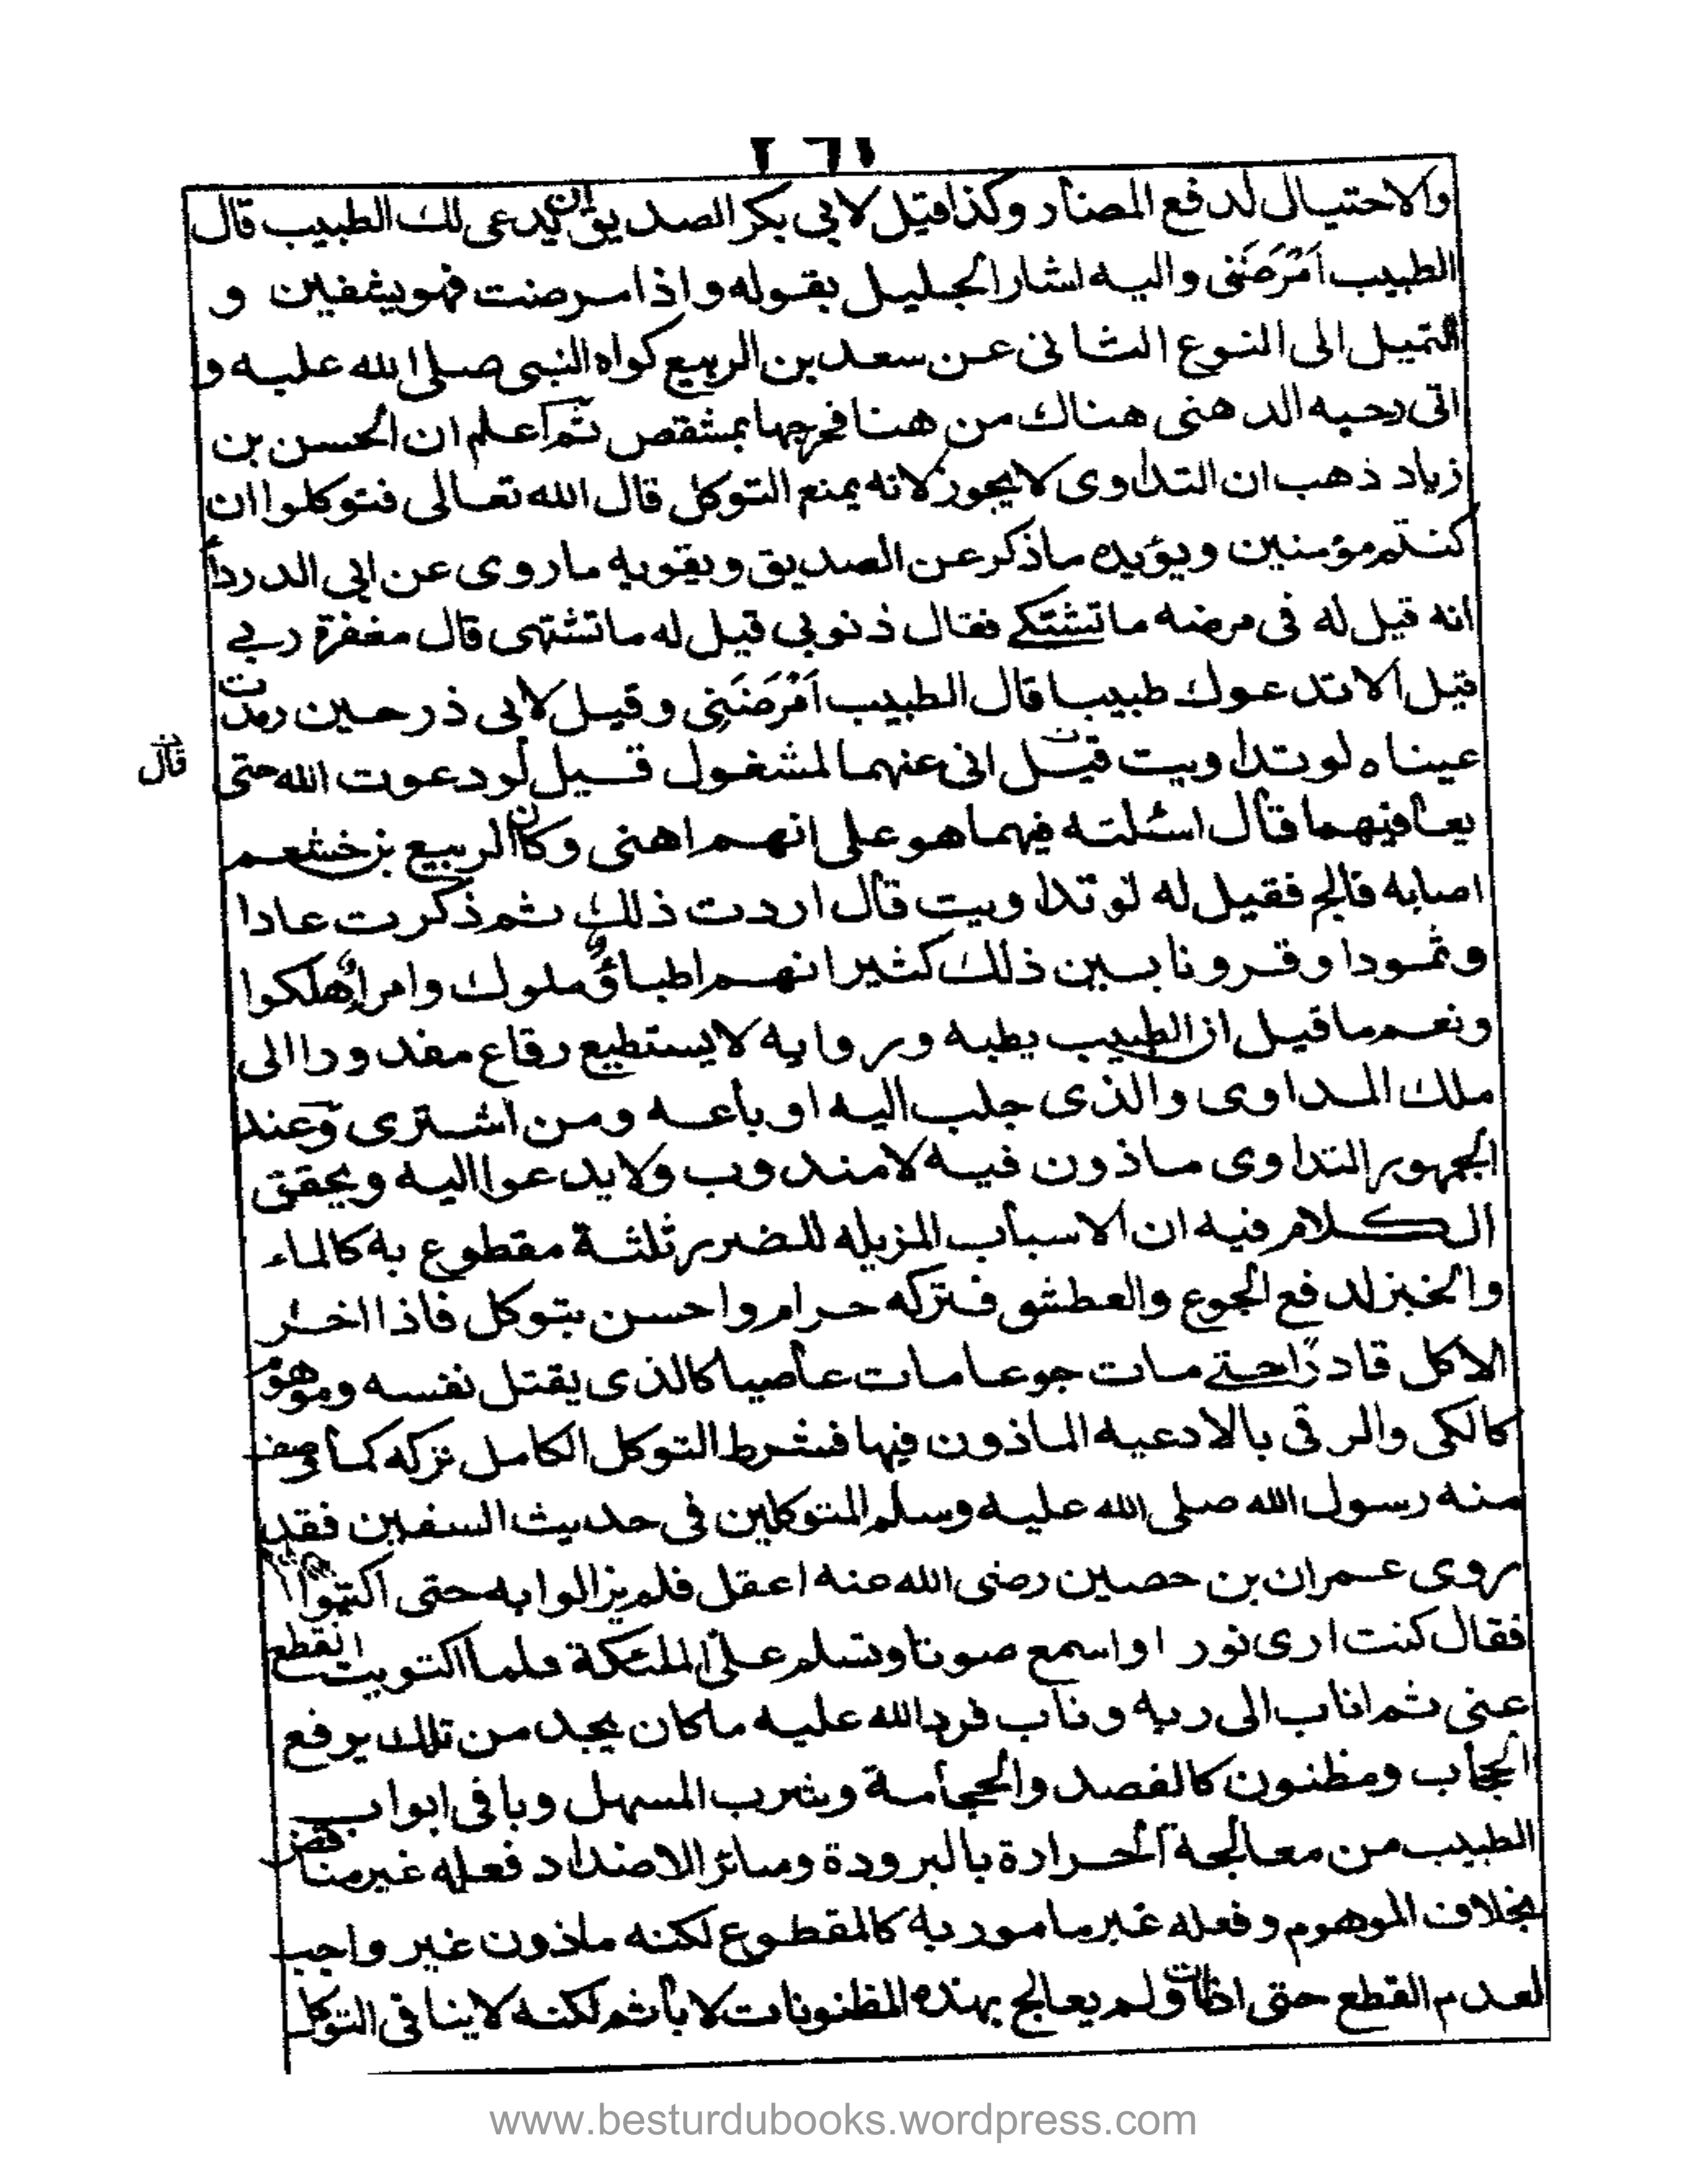 والاحتيال لدفع المضار وكذا قيل لابى بكر الصديق ان يدعى لك الطبيب قال
الطبيب اَمْرَضَنِى واليه اشار الجليل بقوله واذا مرضت فهو يشفين و
التميل الى النوع الثانى عن سعد بن الربيع كواه النبى صلى الله عليه و
اتى دحيه الدهنى هناك من هنا بمشقص ثم اعلم ان الحسن بن
زياد ذهب ان التداوى لا يجوز لانه يمنع التوكل قال الله تعالى فتوكلوا ان
كنتم مؤمنين ويؤيده ماذكر عن الصديق ويقويه ماروى عن ابى الدرداً
انه قيل له فى مرضه ماتشتكے فقال ذنوبى قيل له ماتشتهى قال مغفرة ربے
قيل الا ندعوك طبيبا قال الطبيب اَمْرَضَنِى وقيل لابى ذر حين رمدت
عيناه لو تداويت قيل انى عنهما لمشغول قيل لو دعوت الله حتى
قال
يعافيهما قال اسئلته فيهما هو على انهم اهنى وكان الربيع بن خشعم
اصابه فالج فقيل له لو تداويت قال اردت ذلك ثم ذكرت عادا
وثمودا وقرونا بين ذلك كثيرا انهم اطباؤ ملوك وامراؤ هلكوا
ونعم ماقيل ان الطبيب بطبه وبروايه لا يستطيع رقاع مقدورا الى
ملك المداوى والذى جلب اليه او باعه ومن اشترى وعند
الجمهور التداوى ماذون فيه لا مندوب ولا يدعوا اليه ويحقق
الكلام فيه ان الاسباب المزيله للضرر ثلثة مقطوع به كالماء
والخبز لدفع الجوع والعطش فتركه حرام واحسن بتوكل فاذا اختر
الاكل قادرًا حتے مات جوعا مات عاصيا كالذى يقتل نفسه وموهوم
كالكى والرقى بالادعيه الماذون فيها فشرط التوكل الكامل تركه كما وصف
منه رسول الله صلى الله عليه وسلم المتوكلين فى حديث السفين فقد
روى عمران بن حصين رضى الله عنه اعقل فلم يزالوا به حتى اكتوا
فقال كنت ارى نور او اسمع صوتا وتسلم على الملئكة فلما اكتويت انقطع
عنى ثم اناب الى ربه وناب فرد الله عليه ماكان يجد من تلك يرفع
الحجاب ومظنون كالفصد والحجامة وشرب المسهل وباقى ابواب
الطبيب من معالجة الحرارة بالبرودة وسائر الاضداد فعله غير مناقض
بخلاف الموهوم وفعله غير مامور به كالمقطوع لكنه ماذون غير واجب
لعدم القطع حتى اذا مات ولم يعالج بهذه المظنونات لا يأثم لكنه لا ينافى التوكل
www.besturdubooks.wordpress.com